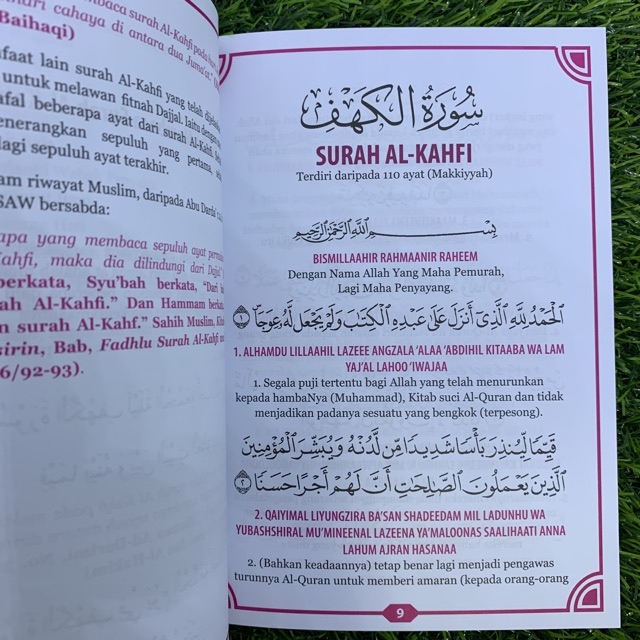 mbaca surah Al-Kahfi pada
hari cahaya di antara dua Juma'at."
Baihaqi)
faat lain surah Al-Kahfi yang telah
untuk melawan fitnah Dajjal. Iaitu dengan
afal beberapa ayat dari surah Al-Kahfi.
enerangkan sepuluh yang pertama,
lagi sepuluh ayat terakhir.
am riwayat Muslim, daripada Abu Darda'
SAW bersabda:
apa yang membaca sepuluh ayat
Kahfi, maka dia dilindungi dari Dajjal
berkata, Syu'bah berkata, "Dari
ah Al-Kahfi." Dan Hammam
n surah Al-Kahf." Sahih Muslim,
sirin, Bab, Fadhlu Surah Al-Kahfi
6/92-93).
سُورَةُ الْكَهْفِ
SURAH AL-KAHFI
Terdiri daripada 110 ayat (Makkiyyah)
بِسْمِ اللَّهِ الرَّحْمَٰنِ الرَّحِيمِ
BISMILLAAHIR RAHMAANIR RAHEEM
Dengan Nama Allah Yang Maha Pemurah,
Lagi Maha Penyayang.
الْحَمْدُ لِلَّهِ الَّذِي أَنزَلَ عَلَىٰ عَبْدِهِ الْكِتَابَ وَلَمْ يَجْعَل لَّهُ عِوَجًا ۜ ﴿١﴾
1. ALHAMDU LILLAAHIL LAZEEE ANGZALA 'ALAA 'ABDIHIL KITAABA WA LAM
YAJ'AL LAHOO 'IWAJAA
1. Segala puji tertentu bagi Allah yang telah menurunkan
kepada hambaNya (Muhammad), Kitab suci Al-Quran dan tidak
menjadikan padanya sesuatu yang bengkok (terpesong).
قَيِّمًا لِّيُنذِرَ بَأْسًا شَدِيدًا مِّن لَّدُنْهُ وَيُبَشِّرَ الْمُؤْمِنِينَ
الَّذِينَ يَعْمَلُونَ الصَّالِحَاتِ أَنَّ لَهُمْ أَجْرًا حَسَنًا ﴿٢﴾
2. QAIYIMAL LIYUNGZIRA BA'SAN SHADEEDAM MIL LADUNHU WA
YUBASHSHIRAL MU'MINEENAL LAZEENA YA'MALOONAS SAALIHAATI ANNA
LAHUM AJRAN HASANAA
2. (Bahkan keadaannya) tetap benar lagi menjadi pengawas
turunnya Al-Quran untuk memberi amaran (kepada orang-orang
9